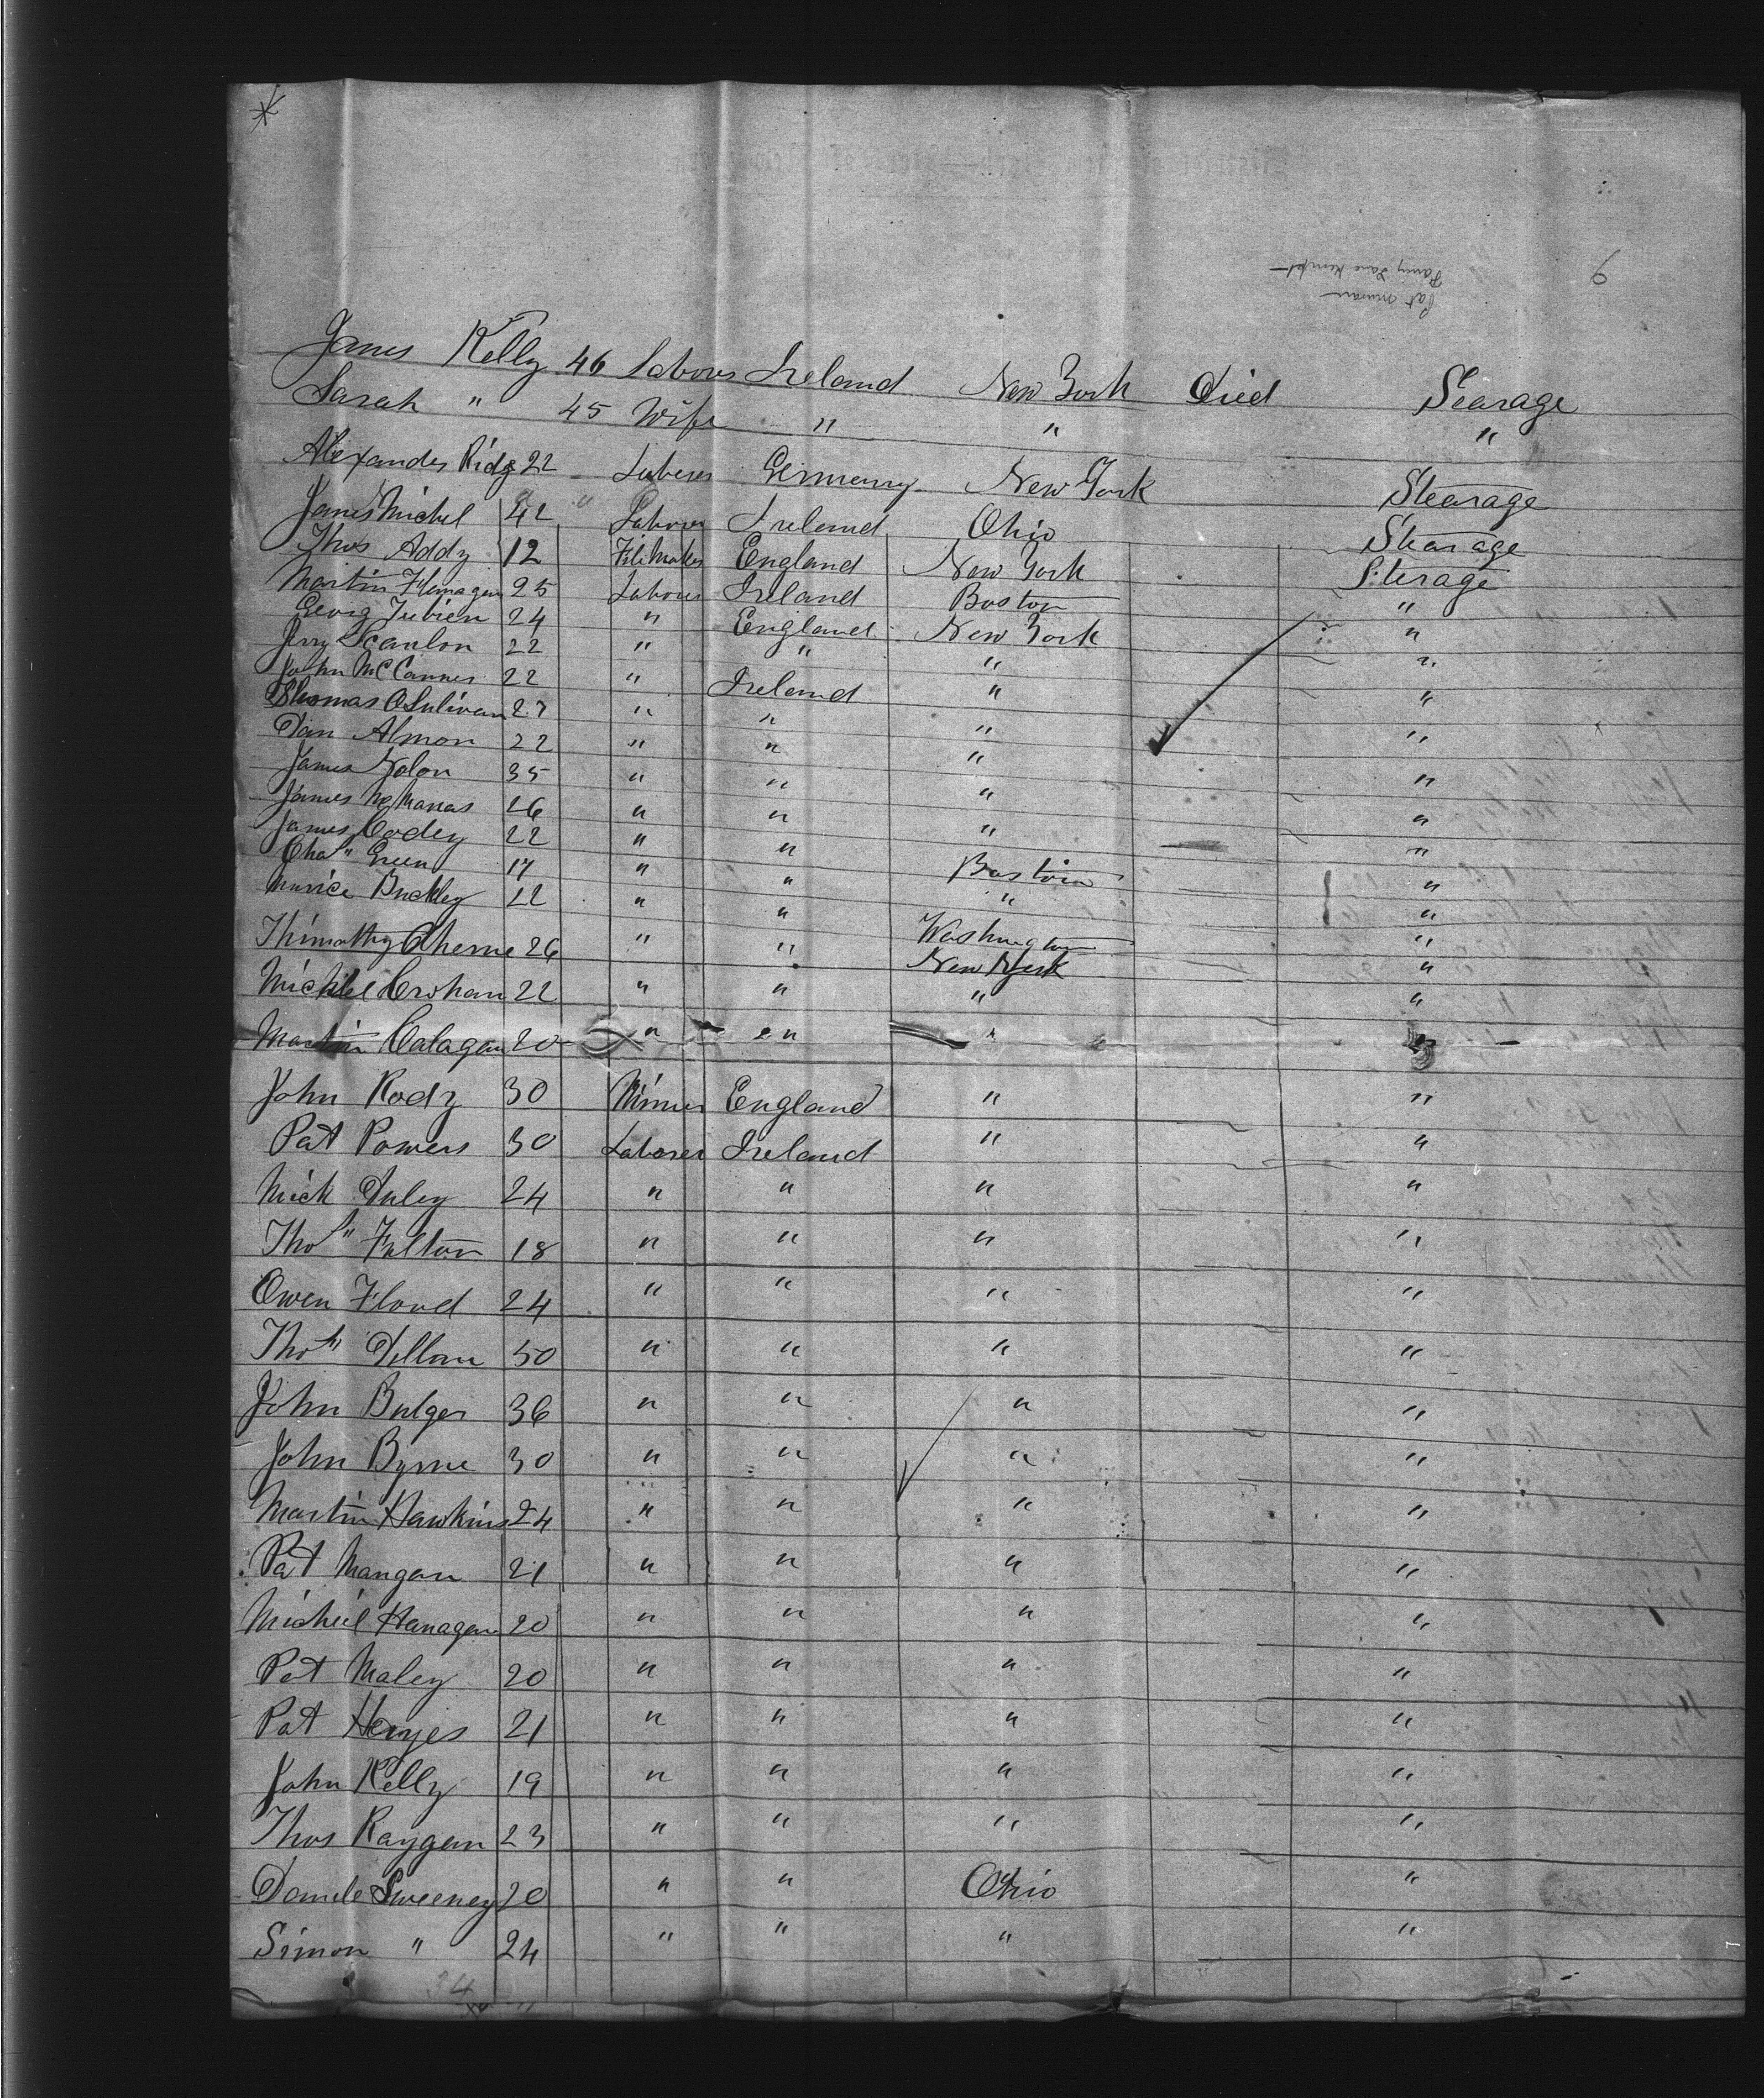 James Kelly 46 Laborer Ireland New York Died Stearage
Sarah " 45 Wife " " "
Alexander Ridge 22 Laberer Germany New York Stearage
James Michel 42 Laborer Ireland Ohio Stearage
Thos Addy 12 File Maker England New York Sterage
Martin Flanagan 25 Laborer Ireland Boston "
Georg Jubien 24 " England New York "
Jerry Scanlon 22 " " " "
John McCanner 22 " Ireland " "
Thomas OSulivan 27 " " " "
Dan Almon 22 " " " "
James Nolon 35 " " " "
James McManas 26 " " " "
James Codey 22 " " " "
Chas" Green 17 " " Boston "
Murice Buckley 22 " " " "
Thimothy Aherne 26 " " Washington "
New York "
Michel Crohan 22 " " " "
Martin Calagan 20 " " " "
John Rody 30 Miner England " "
Pat Powers 30 Laborer Ireland " "
Mick Duley 24 " " " "
Thos" Fulton 18 " " " "
Owen Floud 24 " " " "
Thos" Dillon 50 " " " "
John Bulger 36 " " " "
John Byrne 30 " " " "
Martin Hawkins 24 " " " "
Pat Mangan 21 " " " "
Micheil Hanagan 20 " " " "
Pat Maley 20 " " " "
Pat Heryes 21 " " " "
John Kelly 19 " " " "
Thos Raygan 23 " " " "
Daniele Sweeney 20 " " Ohio "
Simon " 24 " " " "
34